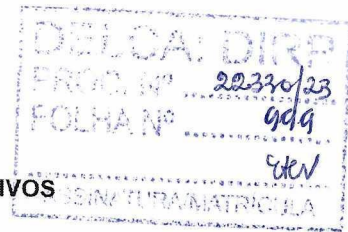 DELCA: DIRP
PROC. Nº 22330/23
FOLHA Nº
IVOS
ASSINATURA/MATRICULA